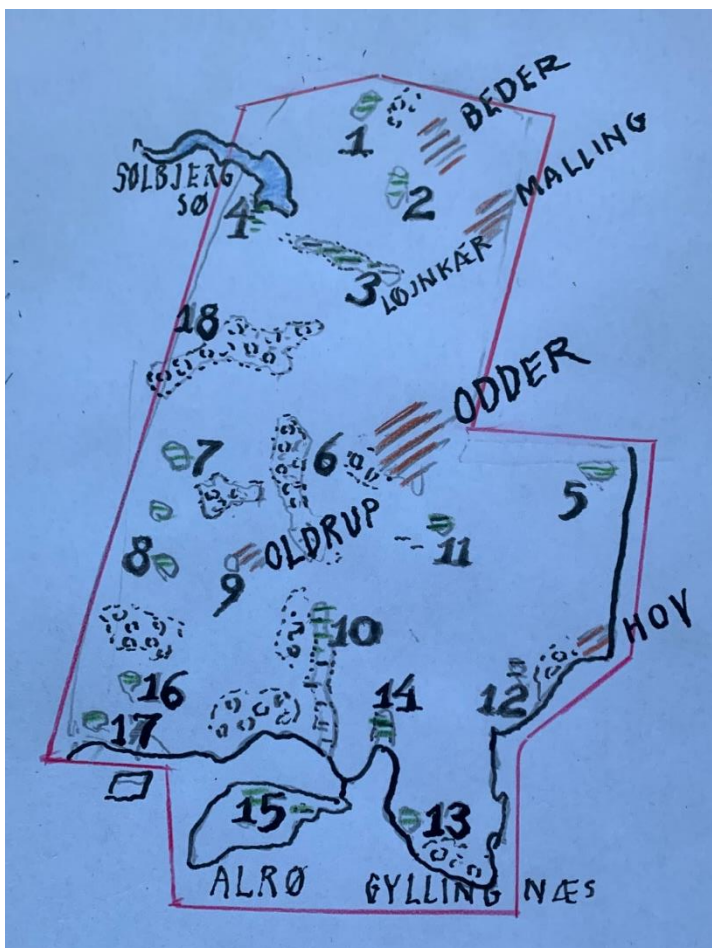 BEDER
1
MALLING
SØLBJERG
SØ
2
4
3
LØJNKÆR
18
ODDER
7
6
5
8
OLDRUP
11
9
10
HOV
12
16
14
17
15
13
ALRØ
GYLLING NÆS